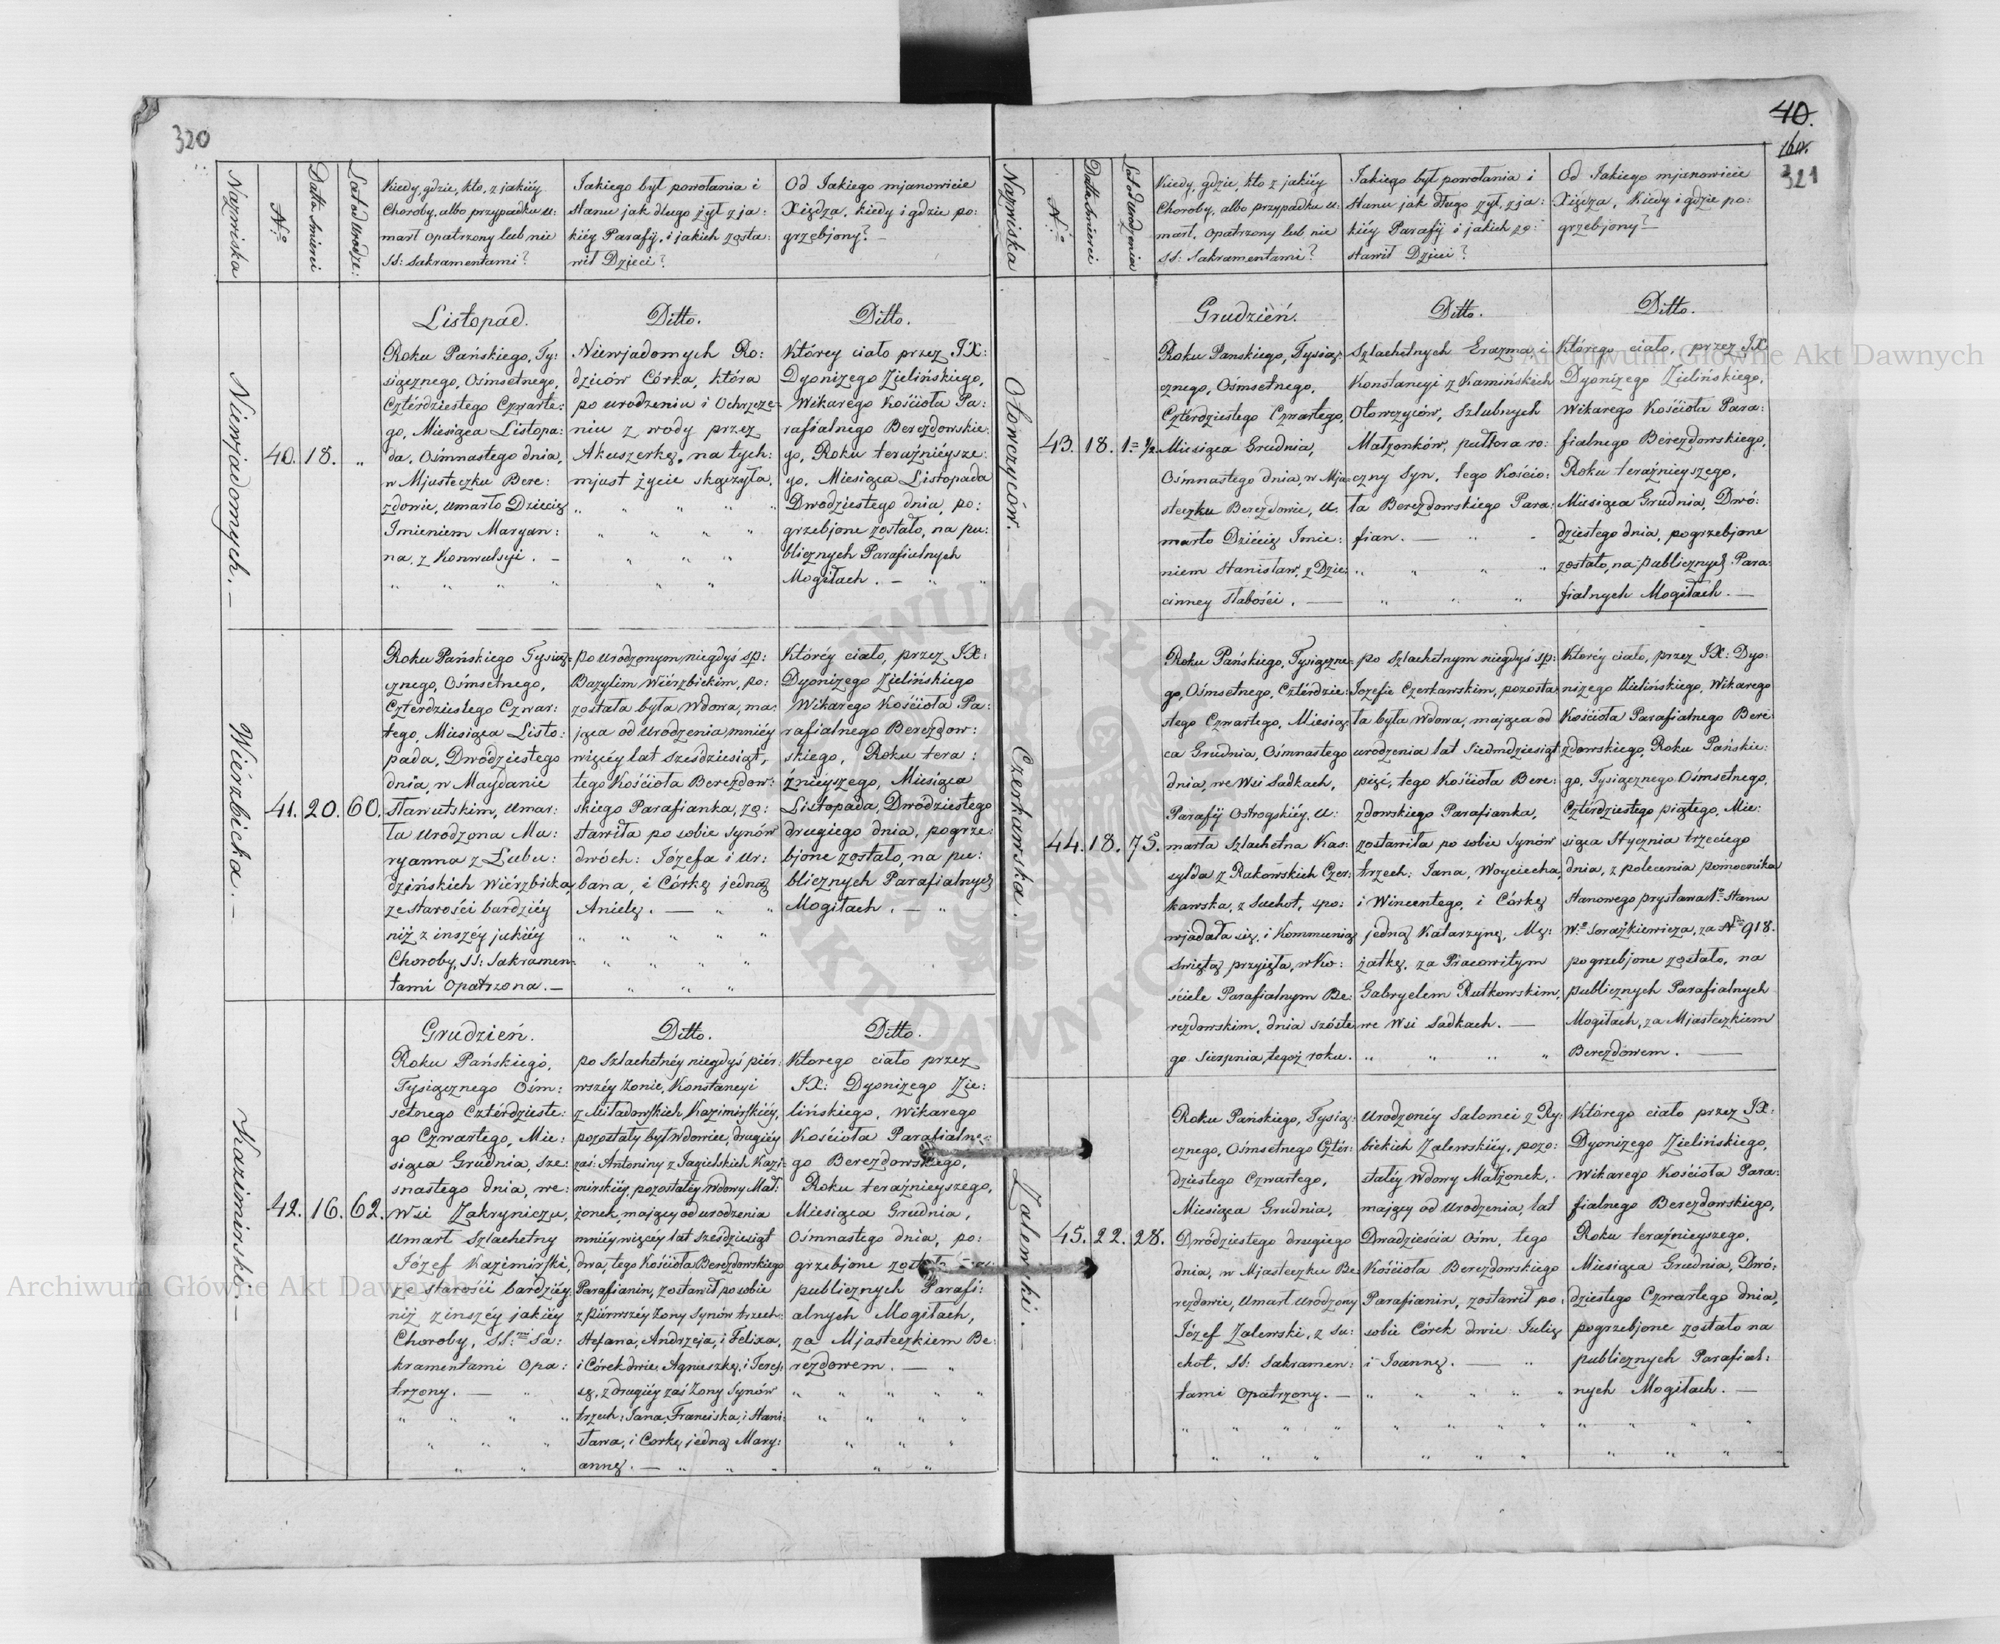 320
Nazwiska
N.o
Data Śmierci
Lat od Urodze:
Kiedy, gdzie, kto, z jakiéy
Choroby, albo przypadku u:
marł Opatrzony lub nie
SS: Sakramentami?
Jakiego był powołania i
stanu jak długo żył z ja:
kiéy Parafÿ, i jakich zosta:
wił Dzieci?
Od Jakiego mjanowicie
Xiędza, kiedy i gdzie po:
grzebjony? —
Niewjadomych. —
40.
18.
„
Listopad.
Roku Pańskiego, Ty:
siącznego, Ośmsetnego,
Cztérdziestego Czwarte:
go, Miesiąca Listopa:
da, Ośmnastego dnia,
w Mjasteczku Bere:
zdowie, umarło Dziecię
Imieniem Maryan:
na, z Konwulsyi. —
Ditto.
Niewjadomych Ro:
dziców Córka, która
po urodzeniu i Ochrzcze:
niu z wody przez
Akuszerkę, na tych:
mjast życie skążyła,
Ditto.
Którey ciało przez JX:
Dyonizego Zielińskiego,
Wikarego Kościoła Pa:
rafialnego Berezdowskie:
go, Roku teraźniéysze:
go, Miesiąca Listopada
Dwódziestego dnia, po:
grzebjone zostało, na pu:
blicznych Parafialnych
Mogiłach. —
Wiérzbicka. —
41.
20.
60.
Roku Pańskiego Tysią:
cznego, Ośmsetnego,
Czterdziestego Czwar:
tego, Miesiąca Listo:
pada, Dwódziestego
dnia, w Maydanie
Sławutskim, Umar:
ła Urodzona Ma:
ryanna z Łubu:
dzińskich Wiérzbicka,
ze starości bardziéy
niż z inszéy jakiéy
Choroby, SS: Sakramen:
tami Opatrzona. —
po Urodzonym niegdyś śp:
Bazylim Wiérzbickim, po:
została była Wdowa, ma:
jąca od Urodzenia mniéy
więcéy lat Sześdziesiąt,
tego Kościoła Berezdow:
skiego Parafianka, zo:
stawiła po sobie Synów
dwóch: Józefa i Ur:
bana, i Córkę jedną
Anielę. —
Któréy ciało, przez JX:
Dyonizego Zielińskiego
Wikarego Kościoła Pa:
rafialnego Berezdow:
skiego, Roku tera:
źnieyszego, Miesiąca
Listopada, Dwódziestego
drugiego dnia, pogrze:
bjone zostało, na pu:
blicznych Parafialnych
Mogiłach. —
Kazimirski. —
42.
16.
62.
Grudzień.
Roku Pańskiego,
Tysiącznego Ośm:
setnego Cztérdzieste:
go Czwartego, Mie:
siąca Grudnia, Sze:
snastego dnia, we:
Wsi Zakryniczu,
Umarł Szlachetny
Józef Kazimirski,
ze starości bardziéy
niż z inszéy jakiéy
Choroby, SS:mi Sa:
kramentami Opa:
trzony. —
Ditto.
po Szlachetnéy niegdyś piér:
wszéy Żonie, Konstancyi
z Miładowskich, Kazimirskiéy,
pozostały był Wdowiec, drugiéy
zaś Antoniny z Jagielskich Kazi:
mirskiéy, pozostałéy Wdowy Mał:
żonek, mający od urodzenia
mniéy więcéy lat sześdziesiąt
dwa, tego Kościoła Berezdowskiego
Parafianin, zostawił po sobie
z piérwszéy Żony Synów trzech:
Stefana, Andrzeja, i Felixa,
i Córek dwie: Agnieszkę, i Tere:
sę, z drugiéy zaś Żony Synów
trzech: Jana, Franciska, i Stani:
sława, i Corkę jedną Mary:
annę. —
Ditto.
Ktorego ciało przez
JX: Dyonizego Zie:
lińskiego, Wikarego
Kościoła Parafialne:
go Berezdowskiego,
Roku teraźnieyszego,
Miesiąca Grudnia,
Ośmnastego dnia, po:
grzebjone zostało na
publicznych Parafi:
alnych Mogiłach,
za Mjasteczkiem Be:
rezdowem. —
40.
160.
321
Nazwiska
N.o
Data Śmierci
Lat od Urodzenia
Kiedy, gdzie, kto z jakiéy
Choroby, albo przypadku u:
marł, Opatrzony lub nie
SS: Sakramentami?
Jakiego był powołania i
stanu jak długo żył, z ja:
kiéy Parafÿ i jakich zo:
stawił Dzieci?
Od Jakiego mjanowicie
Xiędza, Kiedy i gdzie po:
grzebjony? —
Ołowczyców. —
43.
18.
1= ½.
Grudzień.
Roku Panskiego, Tysią:
cznego, Ośmsetnego,
Cztérdziestego Czwartego,
Miesiąca Grudnia,
Ośmnastego dnia, w Mja:
steczku Berezdowie, u:
marło Dziécię Imie:
niem Stanisław, z Dzie:
cinney słabości. —
Ditto.
Szlachetnych Erazma i
Konstancyi z Kamińskich
Ołowczyców, Szlubnych
Małżonków, pułtora ro:
czny Syn, tego Kościo:
ła Berezdowskiego Para:
fian. —
Ditto.
Którego ciało, przez JX
Dyonizego Zielińskiego,
Wikarego Kościoła Para:
fialnego Berezdowskiego,
Roku teraźnieyszego,
Miesiąca Grudnia, Dwó:
dziestego dnia, pogrzebjone
zostało, na publicznych Para:
fialnych Mogiłach. —
Czerkawska. —
44.
18.
75.
Roku Pańskiego, Tysiączne:
go, Ośmsetnego, Cztérdzie:
stego Czwartego, Miesią:
ca Grudnia, Ośmnastego
dnia, we Wsi Sadkach,
Parafÿ Ostrogskiéy, U:
marła Szlachetna Kas:
sylda z Rakowskich Czer:
kawska, z Suchot, spo:
wjadała się, i Kommunią
Świętą przyjęła, w Ko:
ściele Parafialnym Be:
rezdowskim, dnia szóste:
go Sierpnia, tegoż roku.
po Szlachetnym niegdyś śp:
Jozefie Czerkawskim, pozosta:
ła była Wdowa, mająca od
urodzenia lat Siedmdziesiąt
pięć, tego Kościoła Bere:
zdowskiego Parafianka,
zostawiła po sobie Synów
trzech: Jana, Woyciecha,
i Wincentego, i Córkę
jedną Katarzynę, Mę:
żatkę, za Pracowitym
Gabryelem Rutkowskim,
we Wsi Sadkach. —
Któréy ciało, przez JX: Dyo:
nizego Zielińskiego, Wikarego
Kościoła Parafialnego Bere
zdowskiego, Roku Pańskie:
go, Tysiącznego Ośmsetnego,
Cztérdziestego piątego, Mie:
siąca Stycznia trzeciego
dnia, z polecenia pomocnika
Stanowego prystawa 1.o Stanu
W.o Sorążkiewicza, za No 918.
pogrzebjone zostało, na
publicznych Parafialnych
Mogiłach, za Mjasteczkiem
Berezdowem. —
Zalewski. —
45.
22.
28.
Roku Pańskiego, Tysią:
cznego, Ośmsetnego Cztér:
dziestego Czwartego,
Miesiąca Grudnia,
Dwódziestego drugiego
dnia, w Mjasteczku Be:
rezdowie, Umarł Urodzony
Józef Zalewski, z Su:
chot, SS: Sakramen:
tami Opatrzony. —
Urodzonéy Salomei z Ry:
bickich Zalewskiéy, pozo:
stałéy Wdowy Małżonek,
mający od Urodzenia, lat
Dwadzieścia Ośm, tego
Kościoła Berezdowskiego
Parafianin, zostawił po:
sobie Córek dwie: Julię
i Joannę. —
Którego ciało przez JX:
Dyonizego Zielińskiego,
Wikarego Kościoła Para:
fialnego Berezdowskiego,
Roku teraźnieyszego,
Miesiąca Grudnia, Dwó:
dziestego Czwartego dnia,
pogrzebjone zostało na
publicznych Parafial:
nych Mogiłach. —
Archiwum Główne Akt Dawnych
Archiwum Główne Akt Dawnych